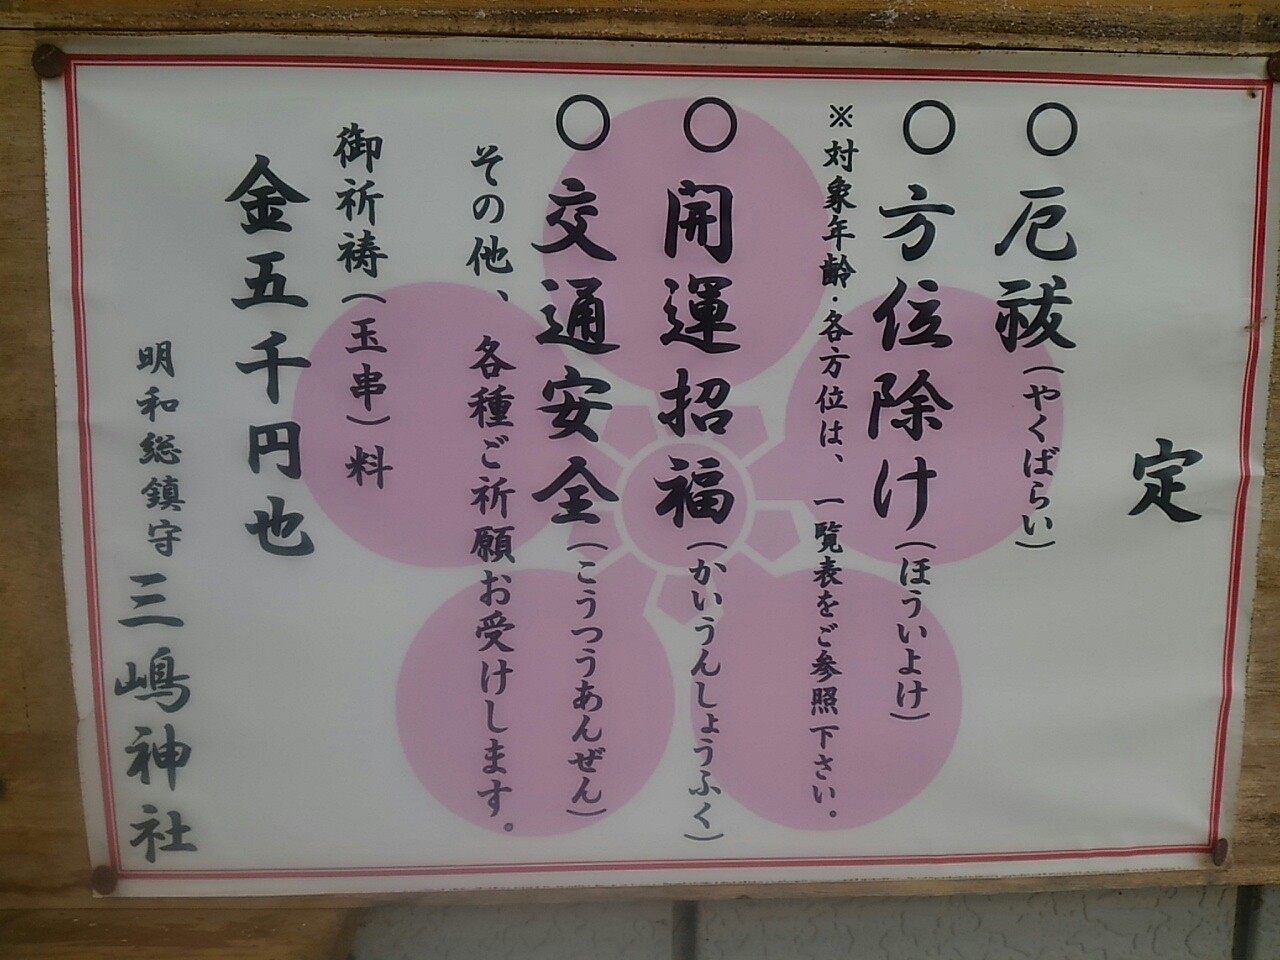 定
〇厄祓(やくばらい)
〇方位除け(ほういよけ)
※対象年齢・各方位は、一覧表をご参照下さい。
〇開運招福(かいうんしょうふく)
〇交通安全(こうつうあんぜん)
その他、各種ご祈願お受けします。
御祈祷(玉串)料
金五千円也
明和総鎮守 三嶋神社